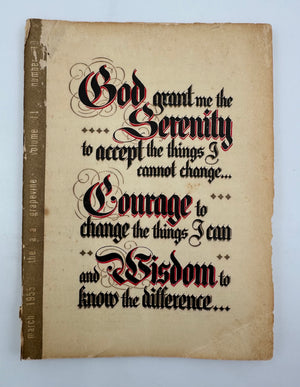 God grant me the
Serenity
to accept the things I
cannot change...
Courage to
change the things I can
and Wisdom to
know the difference...
march 1955 the a.a. grapevine volume 11 number 10